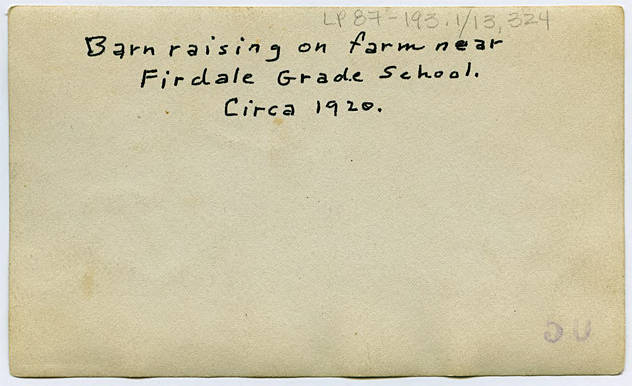 LP 87-193.1/13,324
Barn raising on farm near
Firdale Grade School.
Circa 1920.